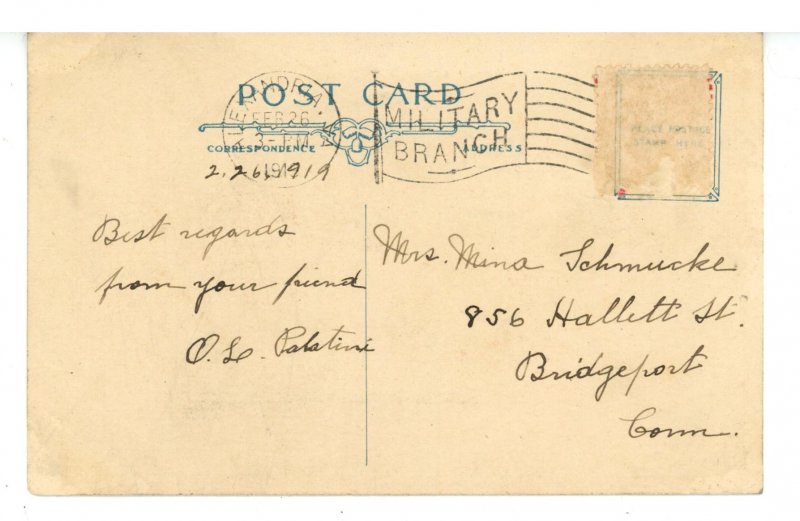 POST CARD
ALEXANDRIA LA
FEB 26
3-PM
1919
MILITARY
BRANCH
CORRESPONDENCE
ADDRESS
PLACE POSTAGE
STAMP HERE
2.26.1919
Best regards
from your friend
O. L. Palatini
Mrs. Mina Schmucke
856 Hallett St.
Bridgeport
Conn.